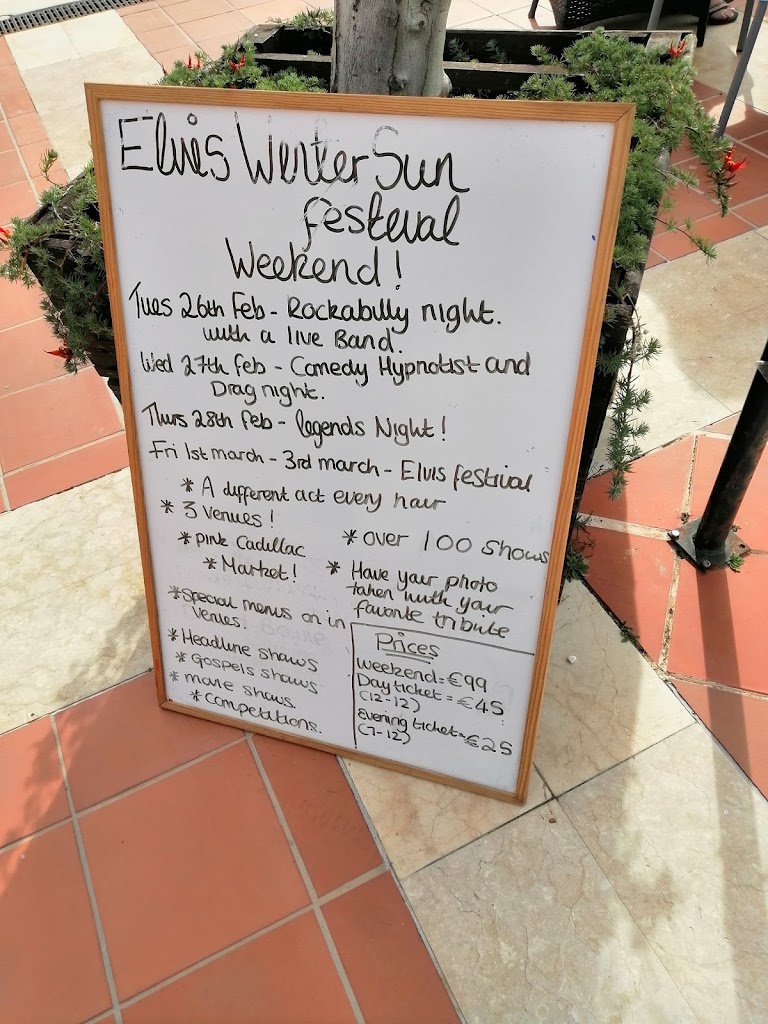 Elvis Winter Sun
festival
Weekend!
Tues 26th Feb - Rockabilly night.
with a live Band.
Wed 27th feb - Comedy Hypnotist and
Drag night.
Thurs 28th Feb - legends Night!
Fri 1st march - 3rd march - Elvis festival
* A different act every hour
* 3 venues!
* pink Cadillac
* Market!
* Special menus on in
venues!
* Headline shows
* Gospels shows
* movie shows.
* Competitions.
* over 100 shows
* Have your photo
taken with your
favorite tribute
Prices
Weekend = €99
Day ticket = €45
(12-12)
Evening ticket = €25
(7-12)